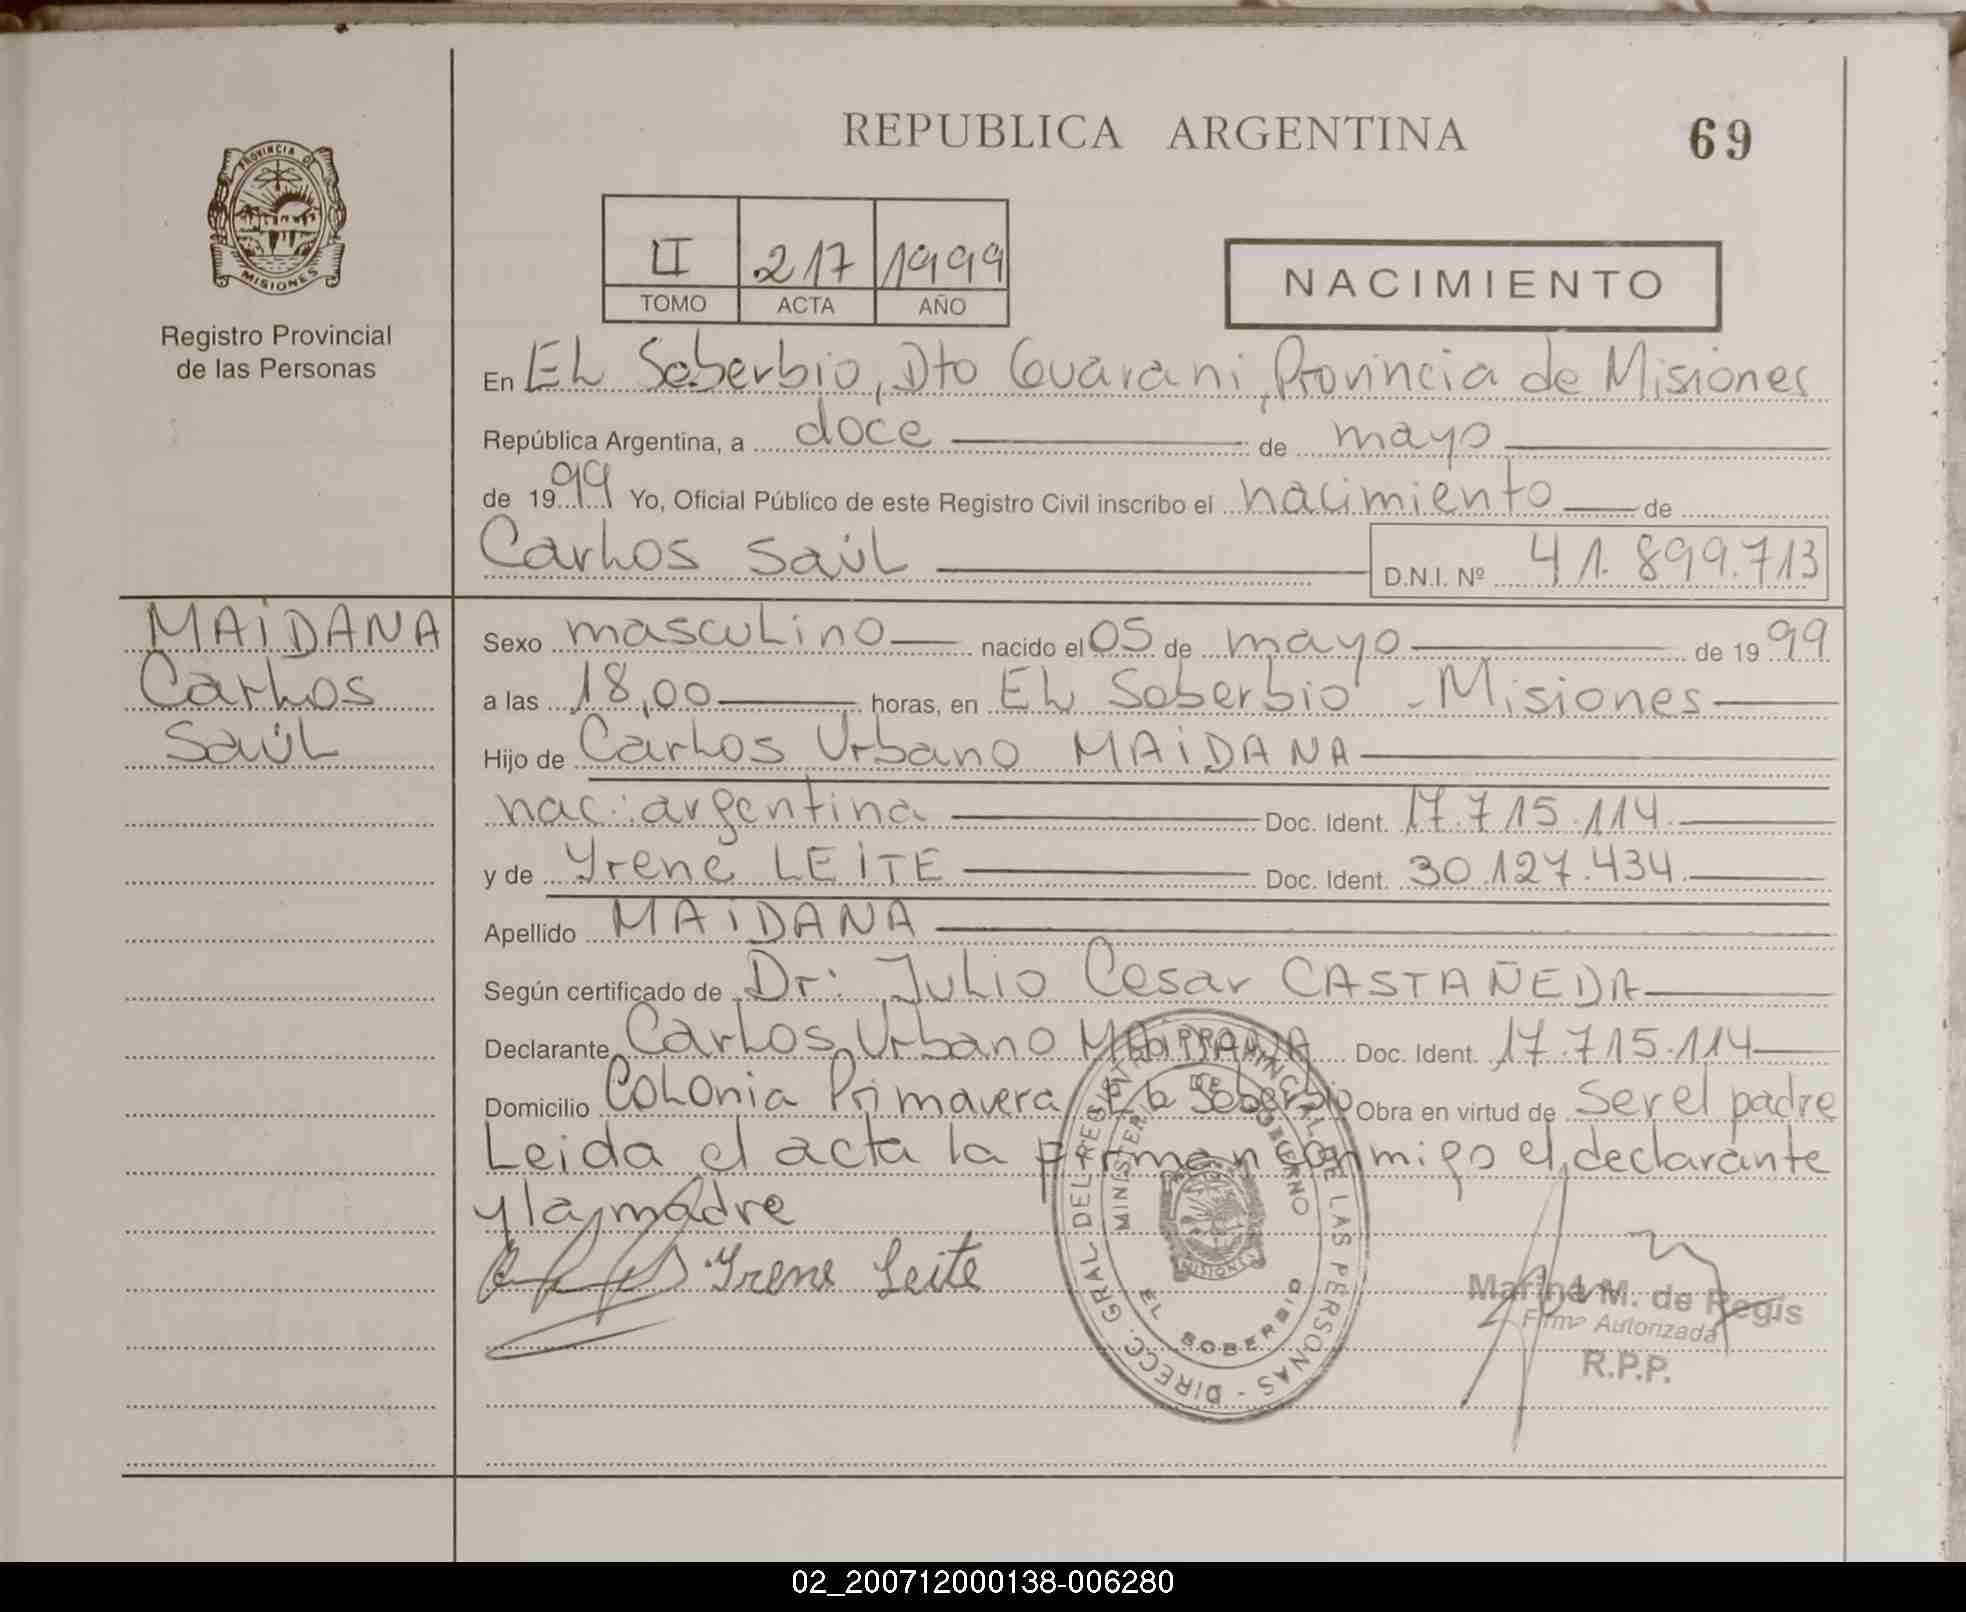 REPUBLICA ARGENTINA
69
PROVINCIA DE
MISIONES
Registro Provincial
de las Personas
II 217 1999
TOMO ACTA AÑO
NACIMIENTO
En EL Soberbio, Dto Guarani, Provincia de Misiones
República Argentina, a doce de mayo
de 1999 Yo, Oficial Público de este Registro Civil inscribo el nacimiento de
Carlos Saúl
D.N.I. Nº 41.899.713
MAIDANA
Carlos
Saúl
Sexo masculino nacido el 05 de mayo de 1999
a las 18,00 horas, en EL Soberbio - Misiones
Hijo de Carlos Urbano MAIDANA
nac: argentina Doc. Ident. 17.715.114
y de Yrene LEITE Doc. Ident. 30.127.434
Apellido MAIDANA
Según certificado de Dr: Julio Cesar CASTAÑEDA
Declarante Carlos Urbano MAIDANA Doc. Ident. 17.715.114
Domicilio Colonia Primavera, EL Soberbio Obra en virtud de Ser el padre
Leida el acta la firman conmigo el declarante
y la madre
Yrene Leite
DIRECC. GRAL DEL REGISTRO PROVINCIAL DE LAS PERSONAS -
MINISTERIO DE GOBIERNO
MISIONES
EL SOBERBIO
Marina M. de Regis
Firma Autorizada
R.P.P.
02_200712000138-006280